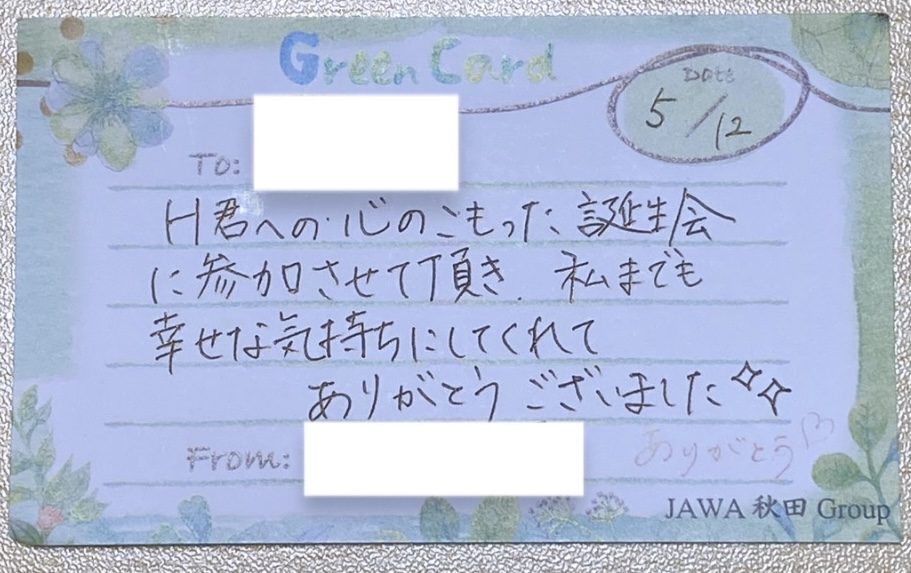 Green Card
Date
5/12
To:
H君への心のこもった誕生会
に参加させて頂き、私までも
幸せな気持ちにしてくれて
ありがとうございました
From:
ありがとう
JAWA 秋田 Group